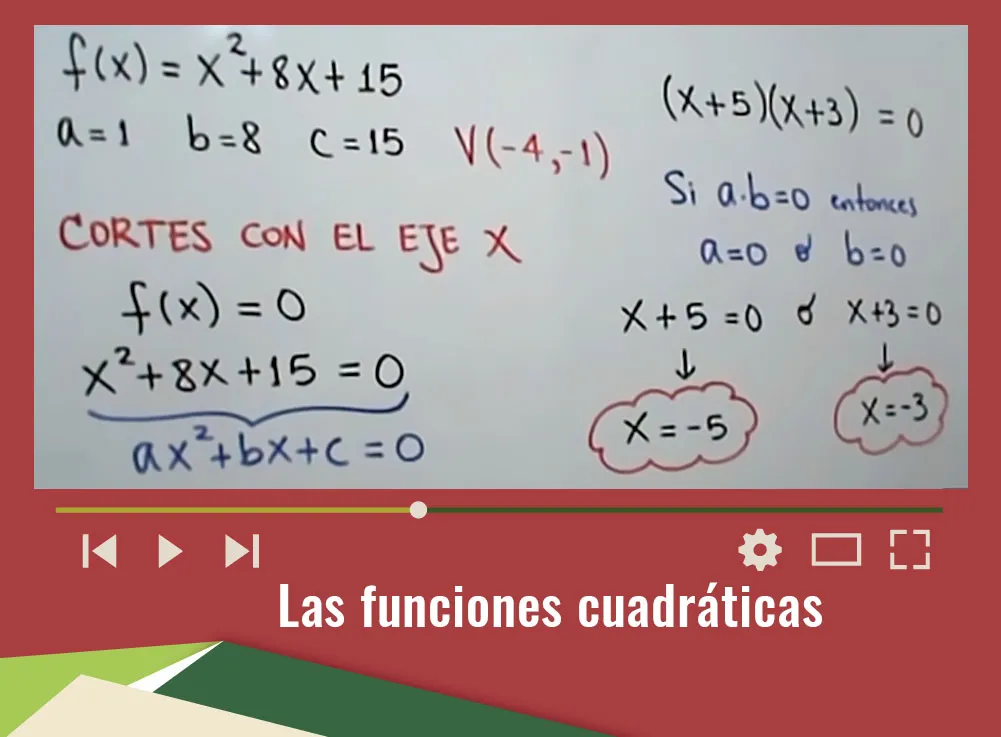 f(x) = x²+8x+15
a=1 b=8 c=15 V(-4,-1)
CORTES CON EL EJE X
f(x) = 0
x²+8x+15 = 0
ax²+bx+c = 0
(x+5)(x+3) = 0
Si a·b=0 entonces
a=0 ó b=0
x+5=0 ó x+3=0
x=-5 x=-3
Las funciones cuadráticas